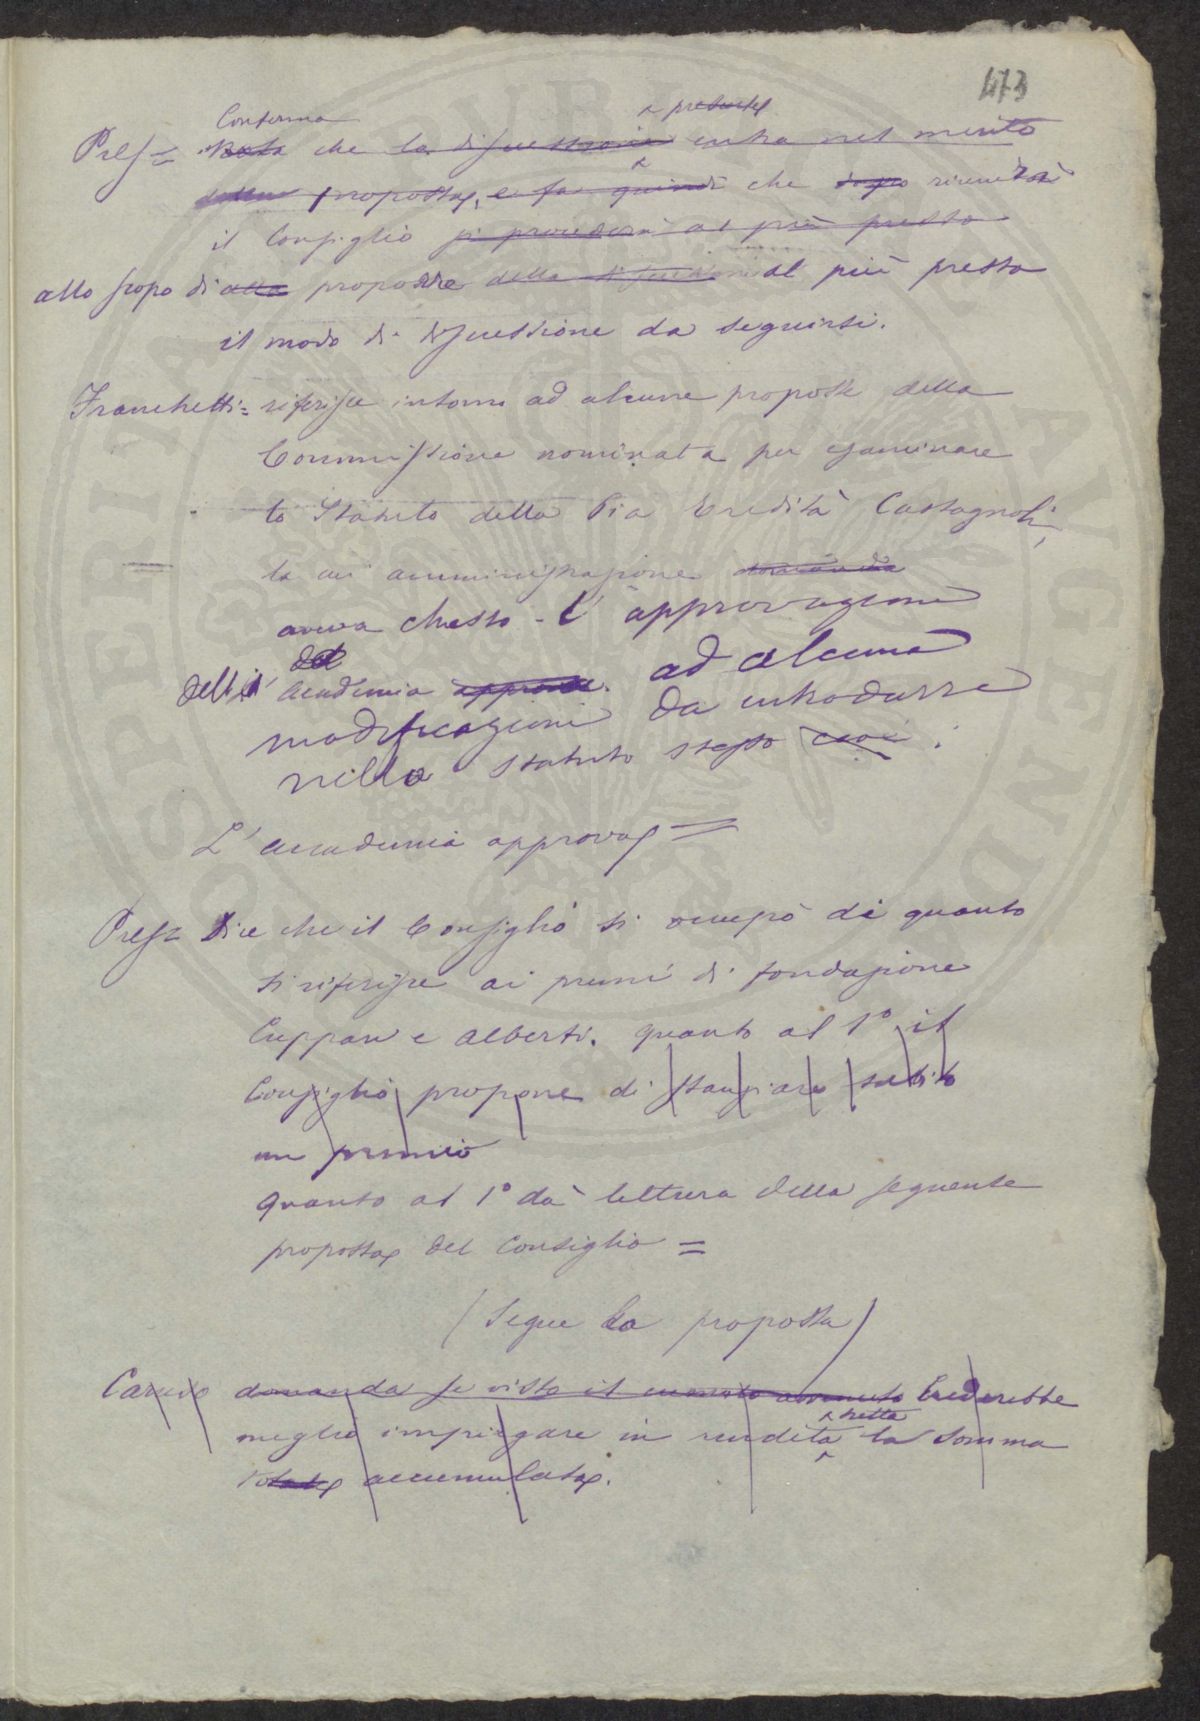 473
Conferma ^ presente
Pres = Nota che la discussione entra nel merito
della proposta, e fa quindi che dopo riunirà
il Consiglio si procederà al più presto
allo scopo di alla proporre della discussione al più presto
il modo di discussione da seguirsi.
Franchetti = riferisce intorno ad alcune proposte della
Commissione nominata per esaminare
lo Statuto della Pia Eredità Castagnoli,
la cui amministrazione domanda
aveva chiesto l'approvazione
del
dell' Accademia approva. ad alcune
modificazioni da introdurre
nello statuto stesso cioè.
L'accademia approva =
Pres = Dice che il Consiglio si occupò di quanto
si riferisce ai premi di fondazione
Cuppari e Alberti. quanto al 1° il
Consiglio propone di stanziare subito
un premio
quanto al 1° dà lettura della seguente
proposta del Consiglio =
(Segue la proposta)
Caruso domanda se visto il aumento avvenuto Crederebbe
^ netta
meglio impiegare in rendita la somma
totale accumulata.